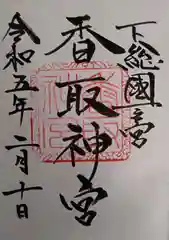 下総國一宮
香取神宮
令和五年二月十日